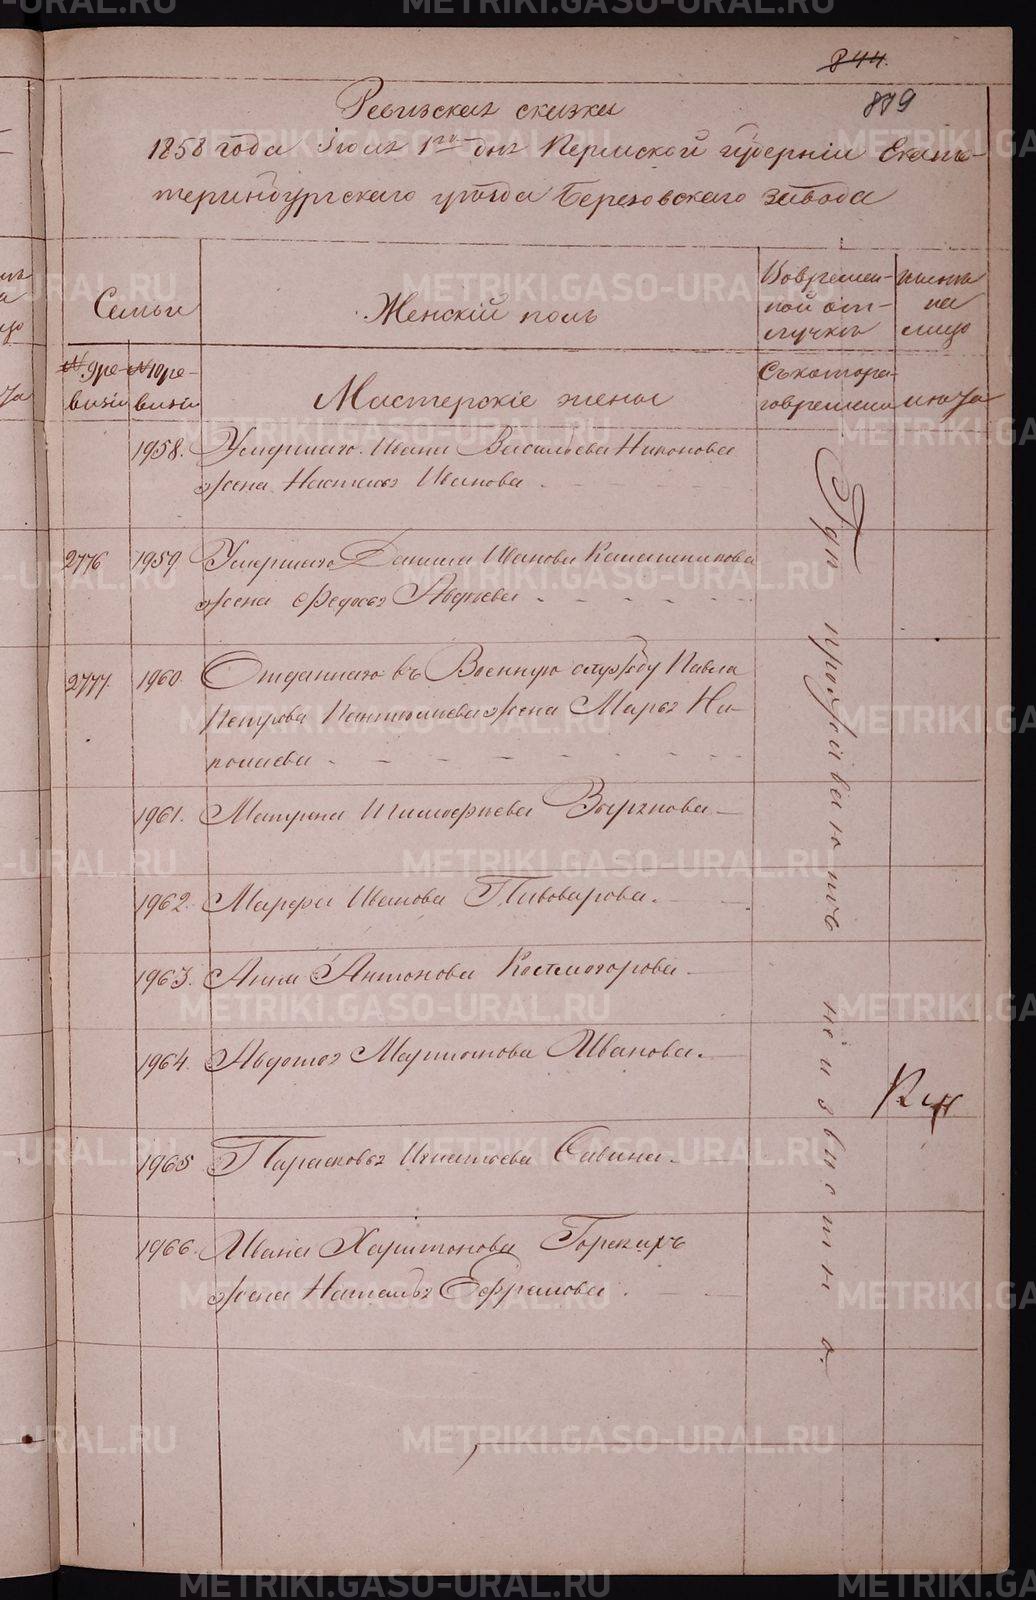 844.
879
Ревизская сказка
1858 года Июля 1го дня Пермской губернiи Екате-
теринбургскаго уѣзда Березовскаго завода
Семьи
Женскiй полъ
Во времен-
ной от-
лучкѣ
нынѣ
на
лицо
№ 9 ре-
визiи
№ 10 ре-
визiи
Мастерскiе жены
Съ котора-
го времени
1958. Умершаго Ивана Васильева Никонова
жена Наталья Иванова
2776 1959 Умершаго Данила Иванова Калашникова
жена Федосья Авдѣева
2777. 1960. Отданнаго въ Военную службу Павла
Петрова Пантилѣева жена Марья Ни-
колаева
1961. Матрена Тимофѣева Зырянова
1962. Марфа Иванова Пивоварова.
1963. Анна Антонова Костмогорова
1964. Авдотья Мартынова Иванова.
1965 Парасковья Игнатьева Савина.
1966. Ивана Харитонова Горскихъ
жена Наталья Ефремова.
Гдѣ проживаютъ неизвѣстно.
METRIKI.GASO-URAL.RU